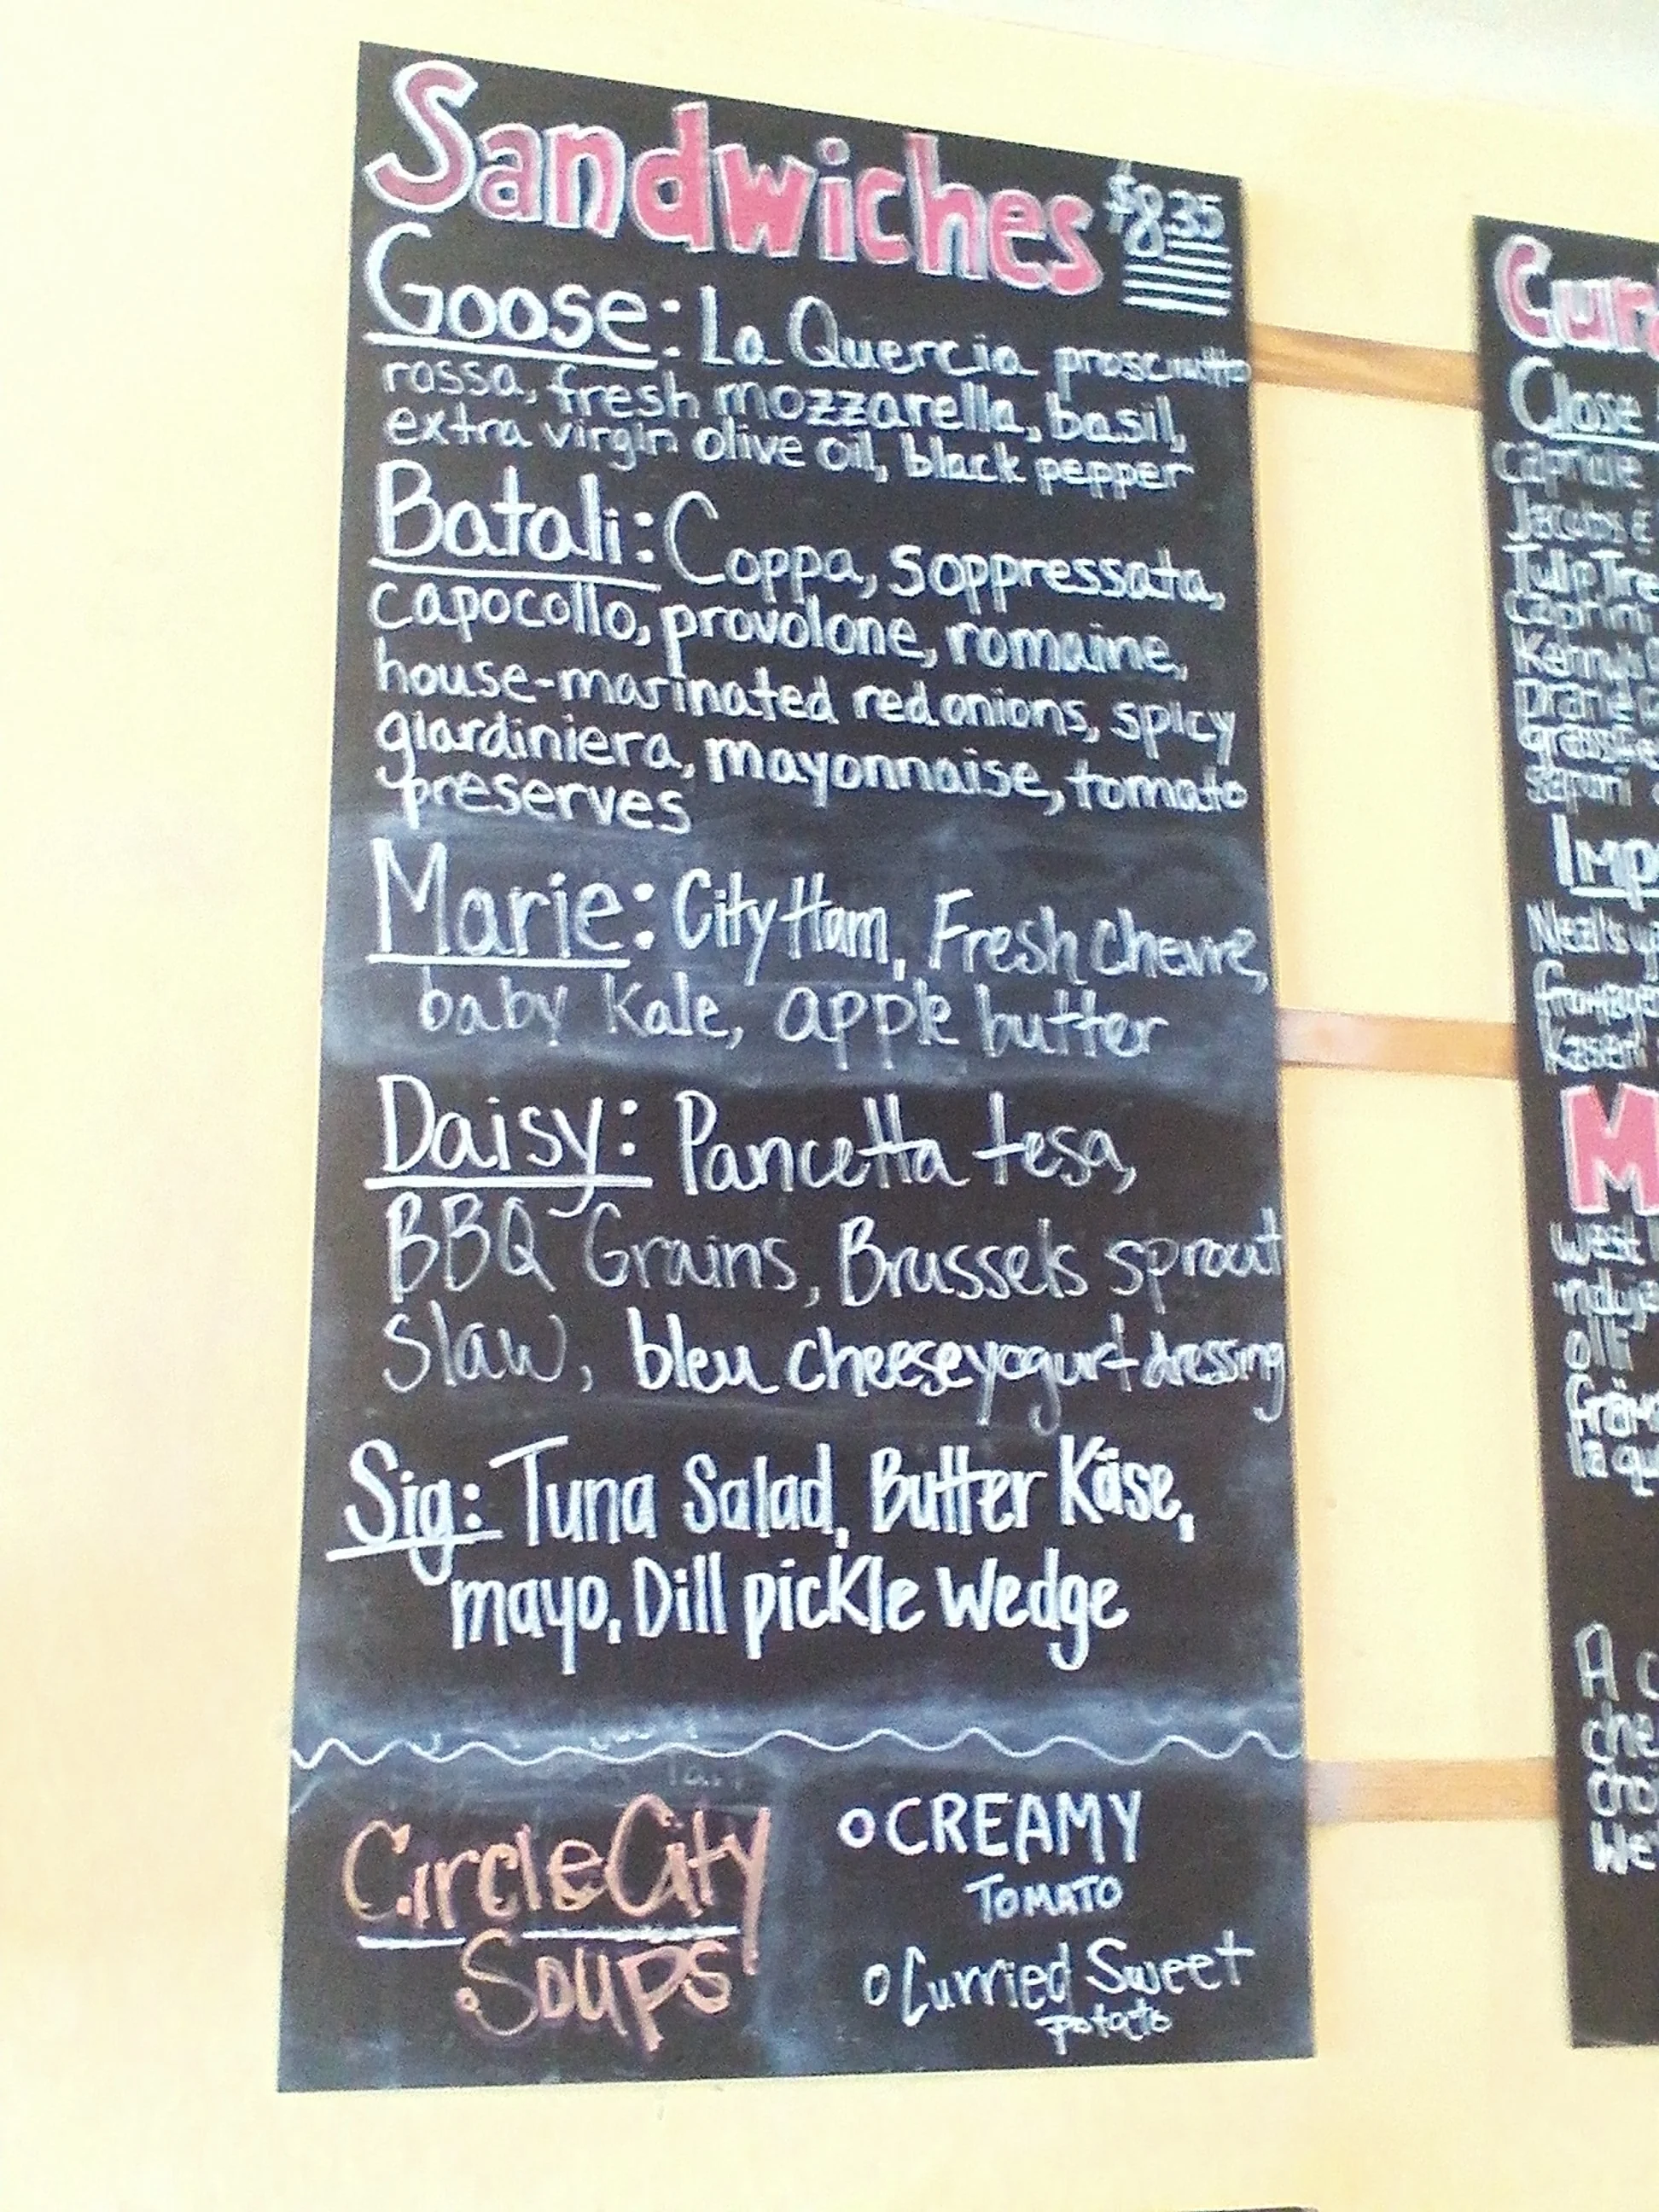 Sandwiches $8.35
Goose: La Quercia prosciutto
rossa, fresh mozzarella, basil,
extra virgin olive oil, black pepper
Batali: Coppa, Soppressata,
capocollo, provolone, romaine,
house-marinated red onions, spicy
giardiniera, mayonnaise, tomato
preserves
Marie: City Ham, Fresh chevre,
baby Kale, apple butter
Daisy: Pancetta tesa,
BBQ Grains, Brussels sprout
Slaw, bleu cheese yogurt dressing
Sig: Tuna Salad, Butter Käse,
mayo, Dill pickle Wedge
Circle City
Soups
CREAMY
TOMATO
Curried Sweet
potato
Close
Caprine
Tulip Tre
Kenny's
Imp
Neal's
Kasen
M
West
olli
la qu
A c
che
We